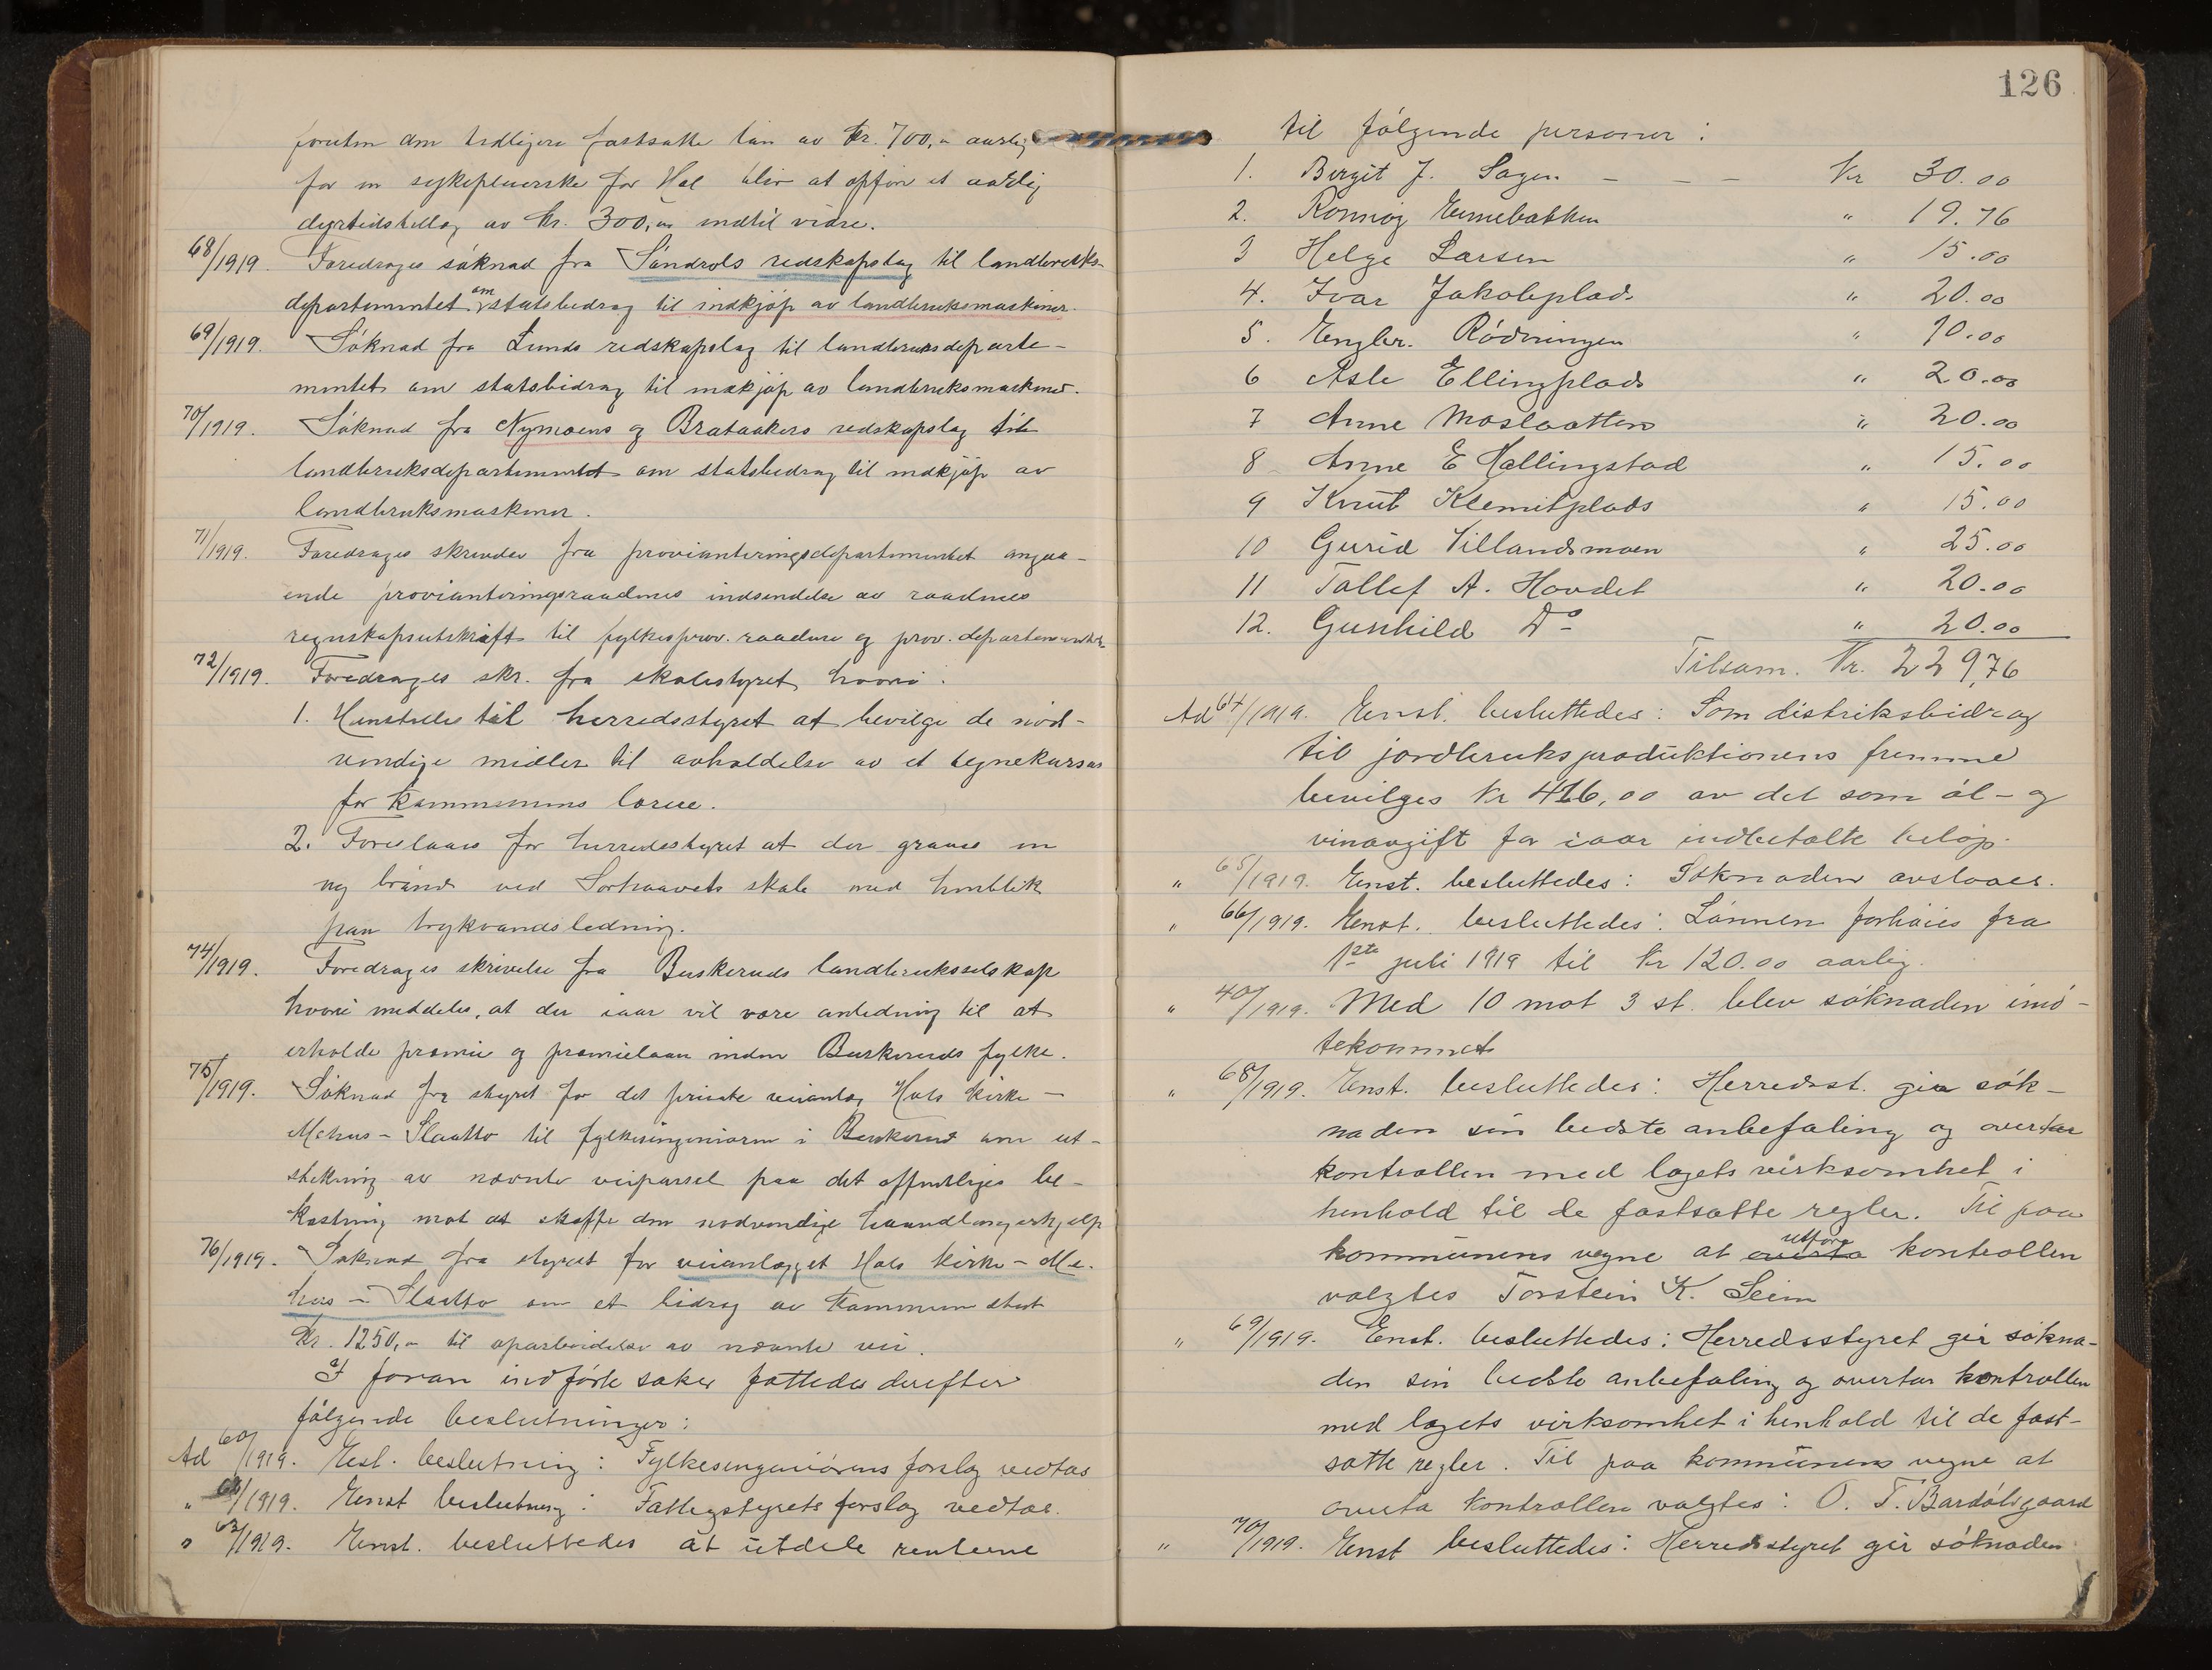 foruten den tidligere fastsatte løn av kr. 700,- aarlig
for en sykepleierske for Hol blir at opføre et aarlig
dyrtidstillæg av kr. 300,- indtil videre.
68/1919. Foredrages søknad fra Sundrols redskapslag til landbruks-
departementet om statsbidrag til indkjøp av landbruksmaskiner.
69/1919. Søknad fra Lunds redskapslag til landbruksdeparte-
mentet om statsbidrag til indkjøp av landbruksmaskiner.
70/1919. Søknad fra Nymoens og Brataakers redskapslag til
landbruksdepartementet om statsbidrag til indkjøp av
landbruksmaskiner.
71/1919. Foredrages skrivelse fra provianteringsdepartementet angaa-
ende provianteringsraadenes indsendelse av raadenes
regnskapsutskrift til fylkesprov. raadene og prov. departementet
72/1919. Foredrages skr. fra skolestyret hvori:
1. Henstilles til herredsstyret at bevilge de nød-
vendige midler til avholdelse av et tegnekursus
for kommunens lærere.
2. Foreslaaes for herredsstyret at der graves en
ny brønd ved skole med henblik
paa trykvandsledning.
74/1919. Foredrages skrivelse fra Buskeruds landbruksselskap
hvori meddeles, at der iaar vil være anledning til at
erholde præmie og præmielaan inden Buskeruds fylke.
75/1919. Søknad fra styret for det private veianlæg Hols kirke -
Mehus - Slaatto til fylkesingeniøren i Buskerud om ut-
stikning av nævnte veiparsel paa det offentliges be-
kostning mot at skaffe den nødvendige haandlangerhjelp
76/1919. Søknad fra styret for veianlægget Hols kirke - Me-
hus - Slaatto om et bidrag av kommunen stort
kr. 1250,- til oparbeidelse av nævnte vei.
I foran indførte saker fattedes derefter
følgende beslutninger:
Ad 60/1919. Enst. beslutning: Fylkesingeniørens forslag vedtas
" /1919. Enst beslutning: Fattigstyrets forslag vedtas.
" 63/1919. Enst. besluttedes at utdele renterne
126
til følgende personer:
1. Birgit J. Sagen - - - Kr 30.00
2. Rønnøg " 19.76
3 Helge Larsen " 15.00
4. Ivar Jakobplads " 20.00
5. Engebr. Rødningen " 10.00
6 Asle Ellingplads " 20.00
7 Anne Moslaatten " 20.00
8 Anne E Hallingstad " 15.00
9 Knut Klemitplads " 15.00
10 Gurid Villandsmoen " 25.00
11 Tollef A. Hovdet " 20.00
12. Gunhild Do " 20.00
Tilsam. Kr. 229,76
Ad 64/1919. Enst. besluttedes: Som distriksbidrag
til jordbruksproduktionens fremme
bevilges kr 416,00 av det som øl- og
vinavgift for iaar indbetalte beløp.
" 65/1919. Enst. besluttedes: Søknaden avslaaes.
" 66/1919. Enst. besluttedes: Lønnen forhøies fra
1ste juli 1919 til kr 120.00 aarlig.
" 40/1919. Med 10 mot 3 st. blev søknaden imø-
tekommet
" 68/1919. Enst. besluttedes: Herredsst. gir søk-
naden sin bedste anbefaling og overtar
kontrollen med lagets virksomhet i
henhold til de fastsatte regler. Til paa
kommunens vegne at overta utføre kontrollen
valgtes Torstein K. Seim
" 69/1919. Enst. besluttedes: Herredsstyret gir søkna-
den sin bedste anbefaling og overtar kontrollen
med lagets virksomhet i henhold til de fast-
satte regler. Til paa kommunens vegne at
overta kontrollen valgtes: O. T. Bardølsgaard
" 70/1919. Enst besluttedes: Herredsstyret gir søknaden